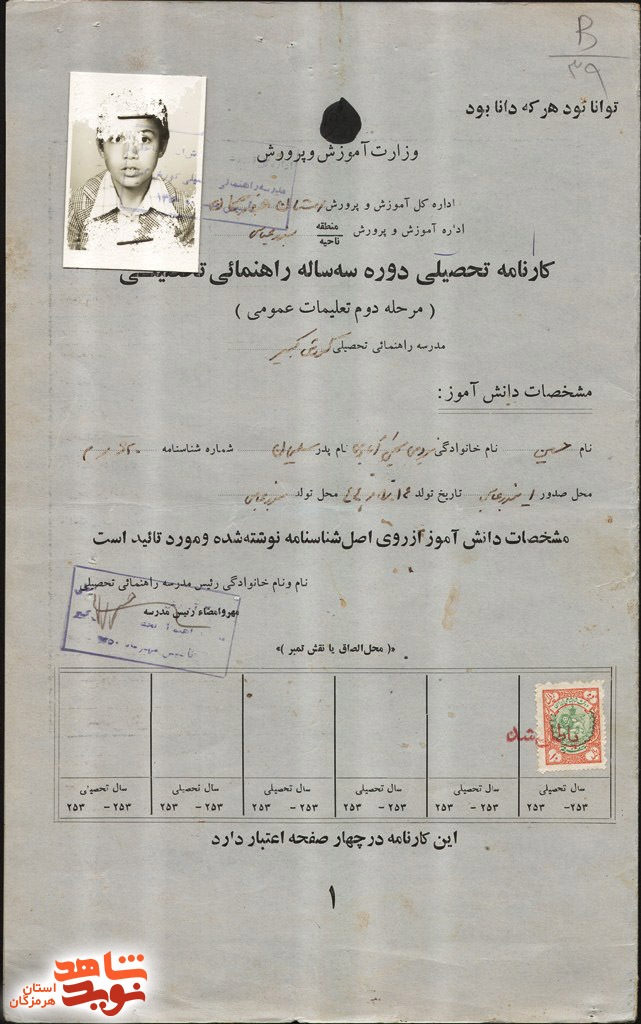 B
۳۹
توانا بود هر که دانا بود
وزارت آموزش و پرورش
اداره کل آموزش و پرورش استان
اداره آموزش و پرورش منطقه ناحیه بندرعباس
کارنامه تحصیلی دوره سه‌ساله راهنمائی تحصیلی
( مرحله دوم تعلیمات عمومی )
مدرسه راهنمائی تحصیلی کورش کبیر
مشخصات دانش آموز :
نام حسین نام خانوادگی نام پدر سلیمان شماره شناسنامه
محل صدور بندرعباس تاریخ تولد محل تولد بندرعباس
مشخصات دانش آموز از روی اصل شناسنامه نوشته‌شده و مورد تائید است
نام و نام خانوادگی رئیس مدرسه راهنمائی تحصیلی
مهر و امضاء رئیس مدرسه
«( محل الصاق یا نقش تمبر )»
باطل شد
سال تحصیلی سال تحصیلی سال تحصیلی سال تحصیلی سال تحصیلی سال تحصیلی
۲۵۳ - ۲۵۳ ۲۵۳ - ۲۵۳ ۲۵۳ - ۲۵۳ ۲۵۳ - ۲۵۳ ۲۵۳ - ۲۵۳ ۲۵۳ - ۲۵۳
این کارنامه در چهار صفحه اعتبار دارد
۱
نوید شاهد
استان هرمزگان